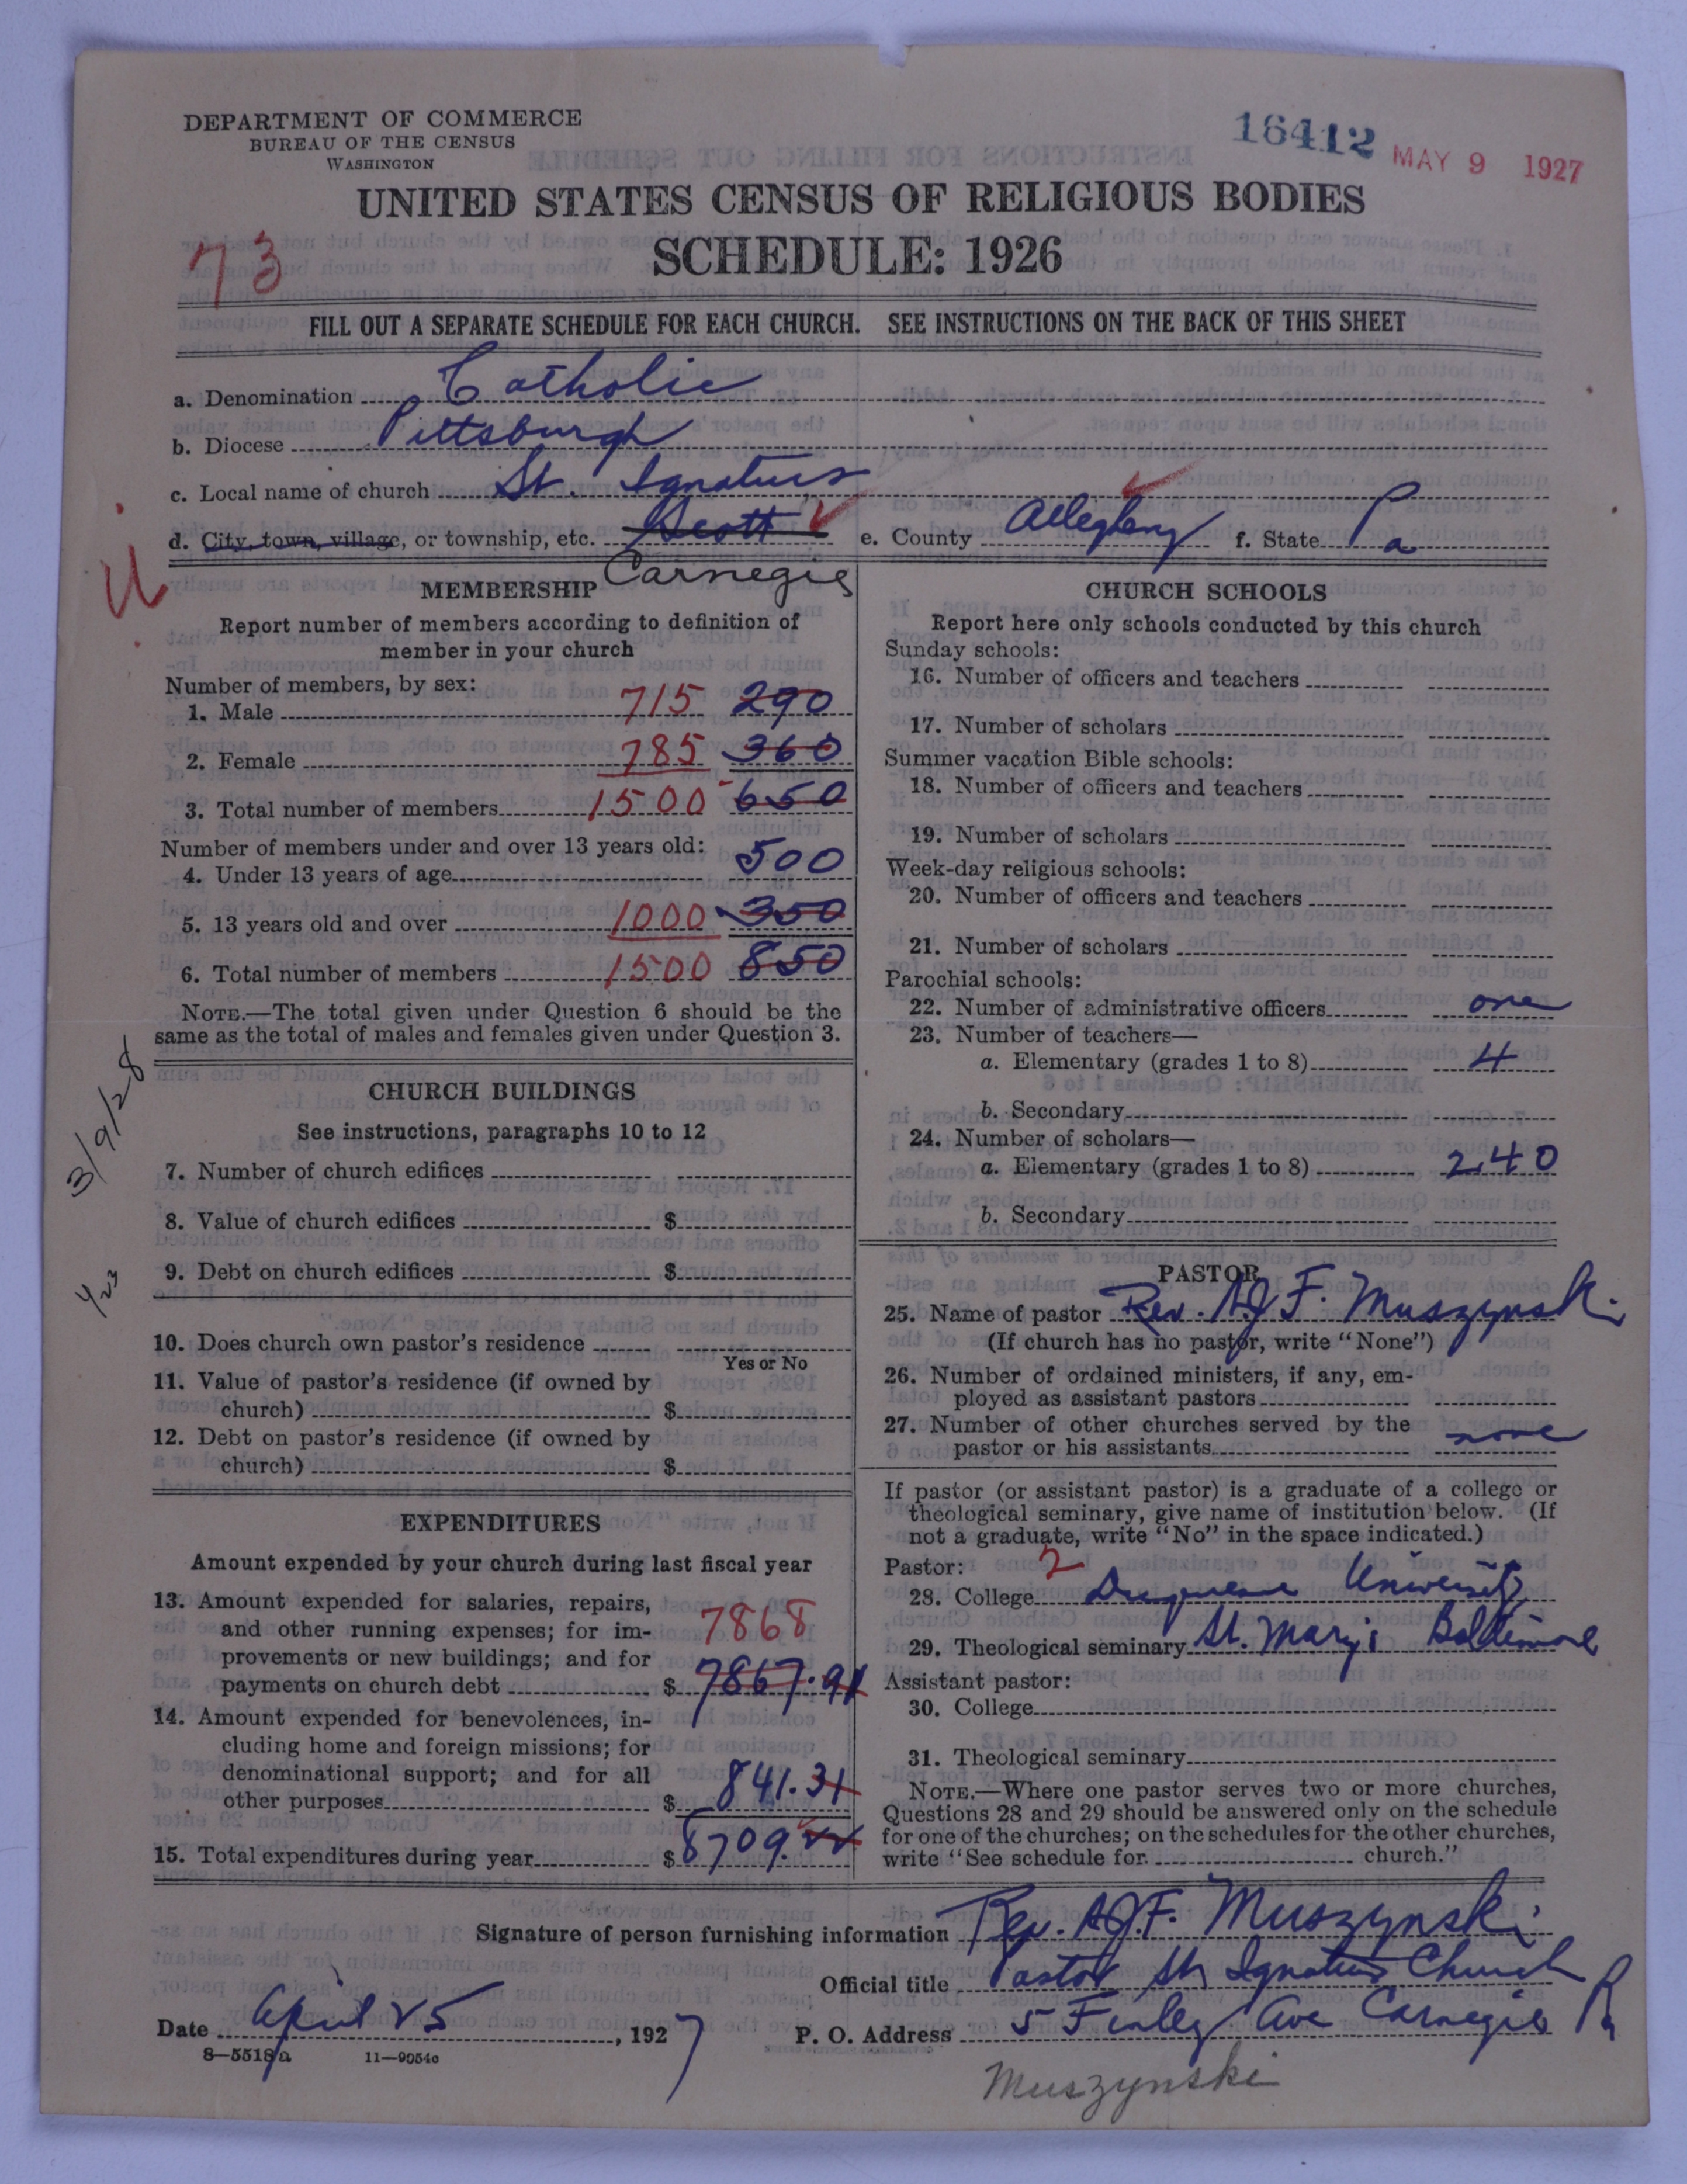 DEPARTMENT OF COMMERCE
BUREAU OF THE CENSUS
WASHINGTON
16412 MAY 9 1927
UNITED STATES CENSUS OF RELIGIOUS BODIES
73
SCHEDULE: 1926
FILL OUT A SEPARATE SCHEDULE FOR EACH CHURCH. SEE INSTRUCTIONS ON THE BACK OF THIS SHEET
a. Denomination Catholic
b. Diocese Pittsburgh
c. Local name of church St. Ignatius
d. City, town, village, or township, etc. Scott e. County Allegheny f. State Pa
Carnegie
MEMBERSHIP
Report number of members according to definition of
member in your church
Number of members, by sex:
1. Male 715 290
2. Female 785 360
3. Total number of members 1500 650
Number of members under and over 13 years old:
4. Under 13 years of age 500
5. 13 years old and over 1000 350
6. Total number of members 1500 850
NOTE.—The total given under Question 6 should be the
same as the total of males and females given under Question 3.
3/9/28
CHURCH BUILDINGS
See instructions, paragraphs 10 to 12
7. Number of church edifices
8. Value of church edifices $
9. Debt on church edifices $
10. Does church own pastor's residence
Yes or No
11. Value of pastor's residence (if owned by
church) $
12. Debt on pastor's residence (if owned by
church) $
EXPENDITURES
Amount expended by your church during last fiscal year
13. Amount expended for salaries, repairs,
and other running expenses; for im-
7868
provements or new buildings; and for
payments on church debt $ 7867.91
14. Amount expended for benevolences, in-
cluding home and foreign missions; for
denominational support; and for all
other purposes $ 841.31
15. Total expenditures during year $ 8709.22
CHURCH SCHOOLS
Report here only schools conducted by this church
Sunday schools:
16. Number of officers and teachers
17. Number of scholars
Summer vacation Bible schools:
18. Number of officers and teachers
19. Number of scholars
Week-day religious schools:
20. Number of officers and teachers
21. Number of scholars
Parochial schools:
22. Number of administrative officers one
23. Number of teachers—
a. Elementary (grades 1 to 8) 4
b. Secondary
24. Number of scholars—
a. Elementary (grades 1 to 8) 240
b. Secondary
PASTOR
25. Name of pastor Rev. A.J.F. Muszynski
(If church has no pastor, write "None")
26. Number of ordained ministers, if any, em-
ployed as assistant pastors
27. Number of other churches served by the
pastor or his assistants none
If pastor (or assistant pastor) is a graduate of a college or
theological seminary, give name of institution below. (If
not a graduate, write "No" in the space indicated.)
Pastor: 2
28. College Duquesne University
29. Theological seminary St. Mary's Baltimore
Assistant pastor:
30. College
31. Theological seminary
NOTE.—Where one pastor serves two or more churches,
Questions 28 and 29 should be answered only on the schedule
for one of the churches; on the schedules for the other churches,
write "See schedule for church."
Signature of person furnishing information Rev. A.J.F. Muszynski
Official title Pastor St. Ignatius Church
Date April 25, 1927 P. O. Address 5 Finley Ave Carnegie Pa
8—5518a 11—9054c
Muszynski